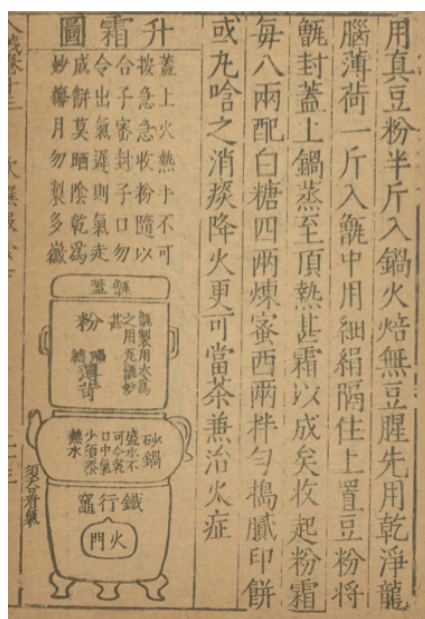 用真豆粉半斤入鍋火焙無豆腥先用乾淨龍
腦薄荷一斤入甑中用細絹隔住上置豆粉將
甑封蓋上鍋蒸至頂熱甚霜以成矣收起粉霜
每八兩配白糖四兩煉蜜西兩拌勻搗膩印餅
或丸唅之消痰降火更可當茶兼治火症
升霜圖
蓋上火熱十不可
按急急收粉隨以
合子審封子口勿
令出氣遲則氣走
成餅莫晒陰乾爲
妙梅月勿製多黴
甑蓋
甑製用木爲
之用瓦甑妙
甚
粉
隔
薄荷
砂鍋
盛水不
可令乾
口中氣
少須添
熱水
鐵行竈
火門